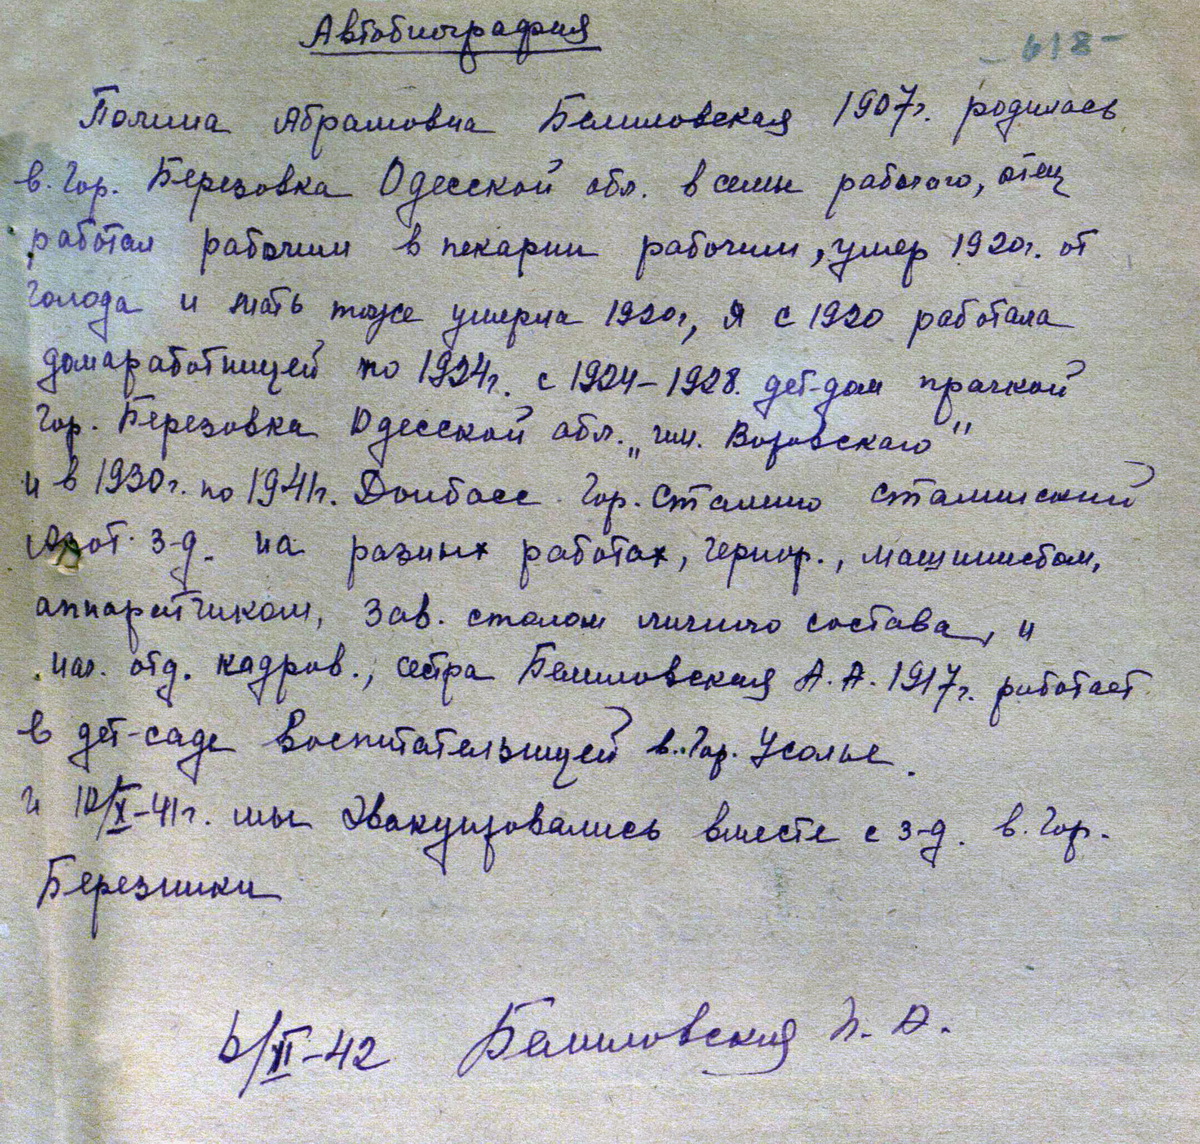 Автобиография
- 618 -
Полина Абрамовна Белиловская 1907г. родилась
в. Гор. Березовка Одесской обл. в семьи рабочого, отец
работал рабочим в пекарии рабочим, умер 1920г. от
голода и мать тоже умерла 1920г, я с 1920 работала
домаработницей по 1924г. с 1924-1928. дет-дом прачкой
Гор. Березовка Одесской обл. „им. Воровскаго"
и в 1930г. по 1941г. Донбасс. Гор. Сталино Сталинский
Азот. з-д. на разных работах, чернор., машинистом,
аппаратчиком, Зав. столом личного состава, и
нач. отд. кадров., сестра Белиловская А. А. 1917г. работает
в дет-саде воспитательницей в. Гор. Усолье.
и 10/X-41г. мы эвакуировались вместе с з-д. в. Гор.
Березники
6/XI-42 Белиловская П. А.